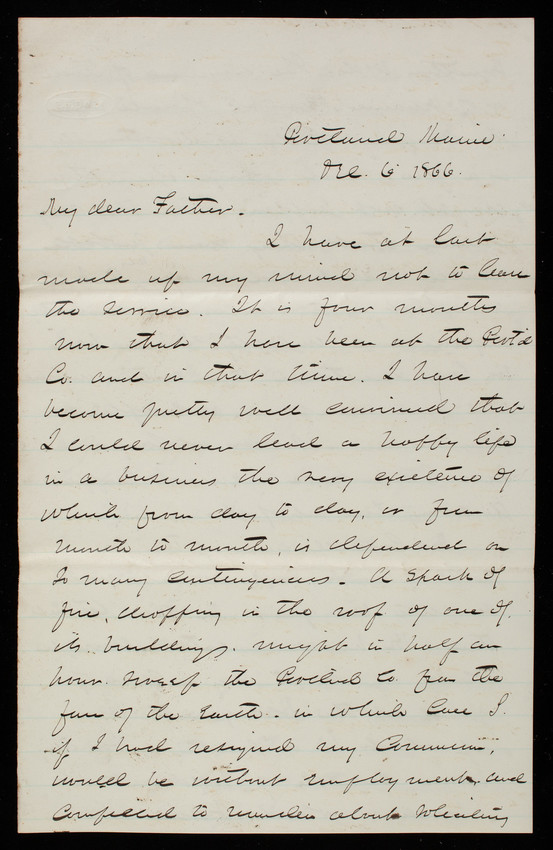 Portland Maine
Dec. 6 1866.
My dear Father.
I have at last
made up my mind not to leave
the service. It is four months
now that I have been at the Portld
Co. and in that time. I have
become pretty well convinced that
I could never lead a happy life
in a business the very existence of
which from day to day, or from
month to month, is dependent on
so many contingencies! A spark of
fire, dropping in the roof of one of
its buildings. might in half an
hour sweep the Portland Co. from the
face of the earth. in which case I.
if I had resigned my Commission,
would be without employment, and
compelled to wander about soliciting